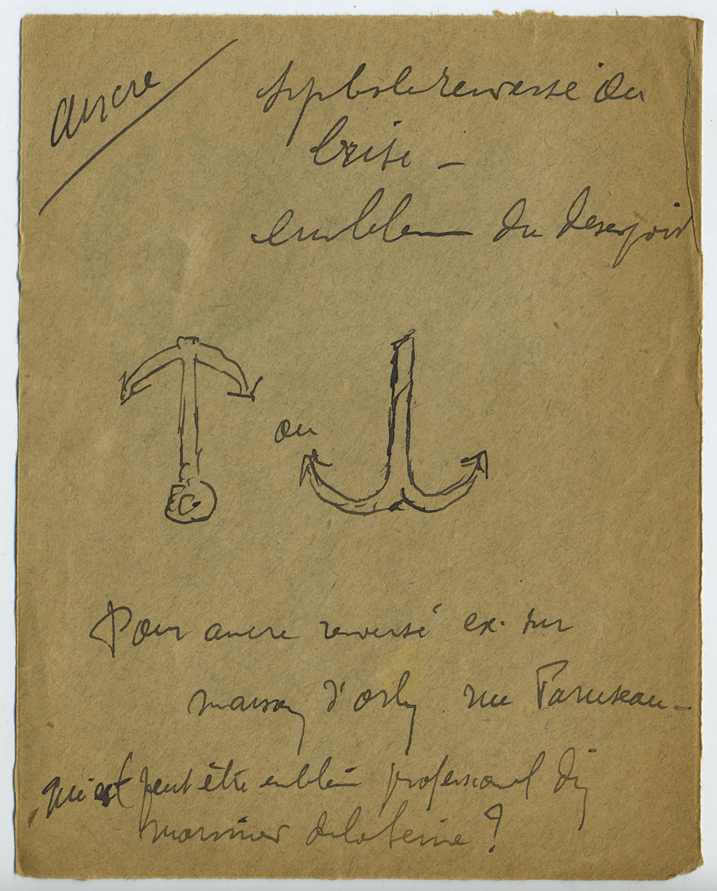 ancre
symbole renversé ou
brisé –
emblem du desespoir
ou
Pour ancre renversé ex. sur
maison d'orly rue
qui est peut être emblèm professionel d'un
marinier de la Seine ?